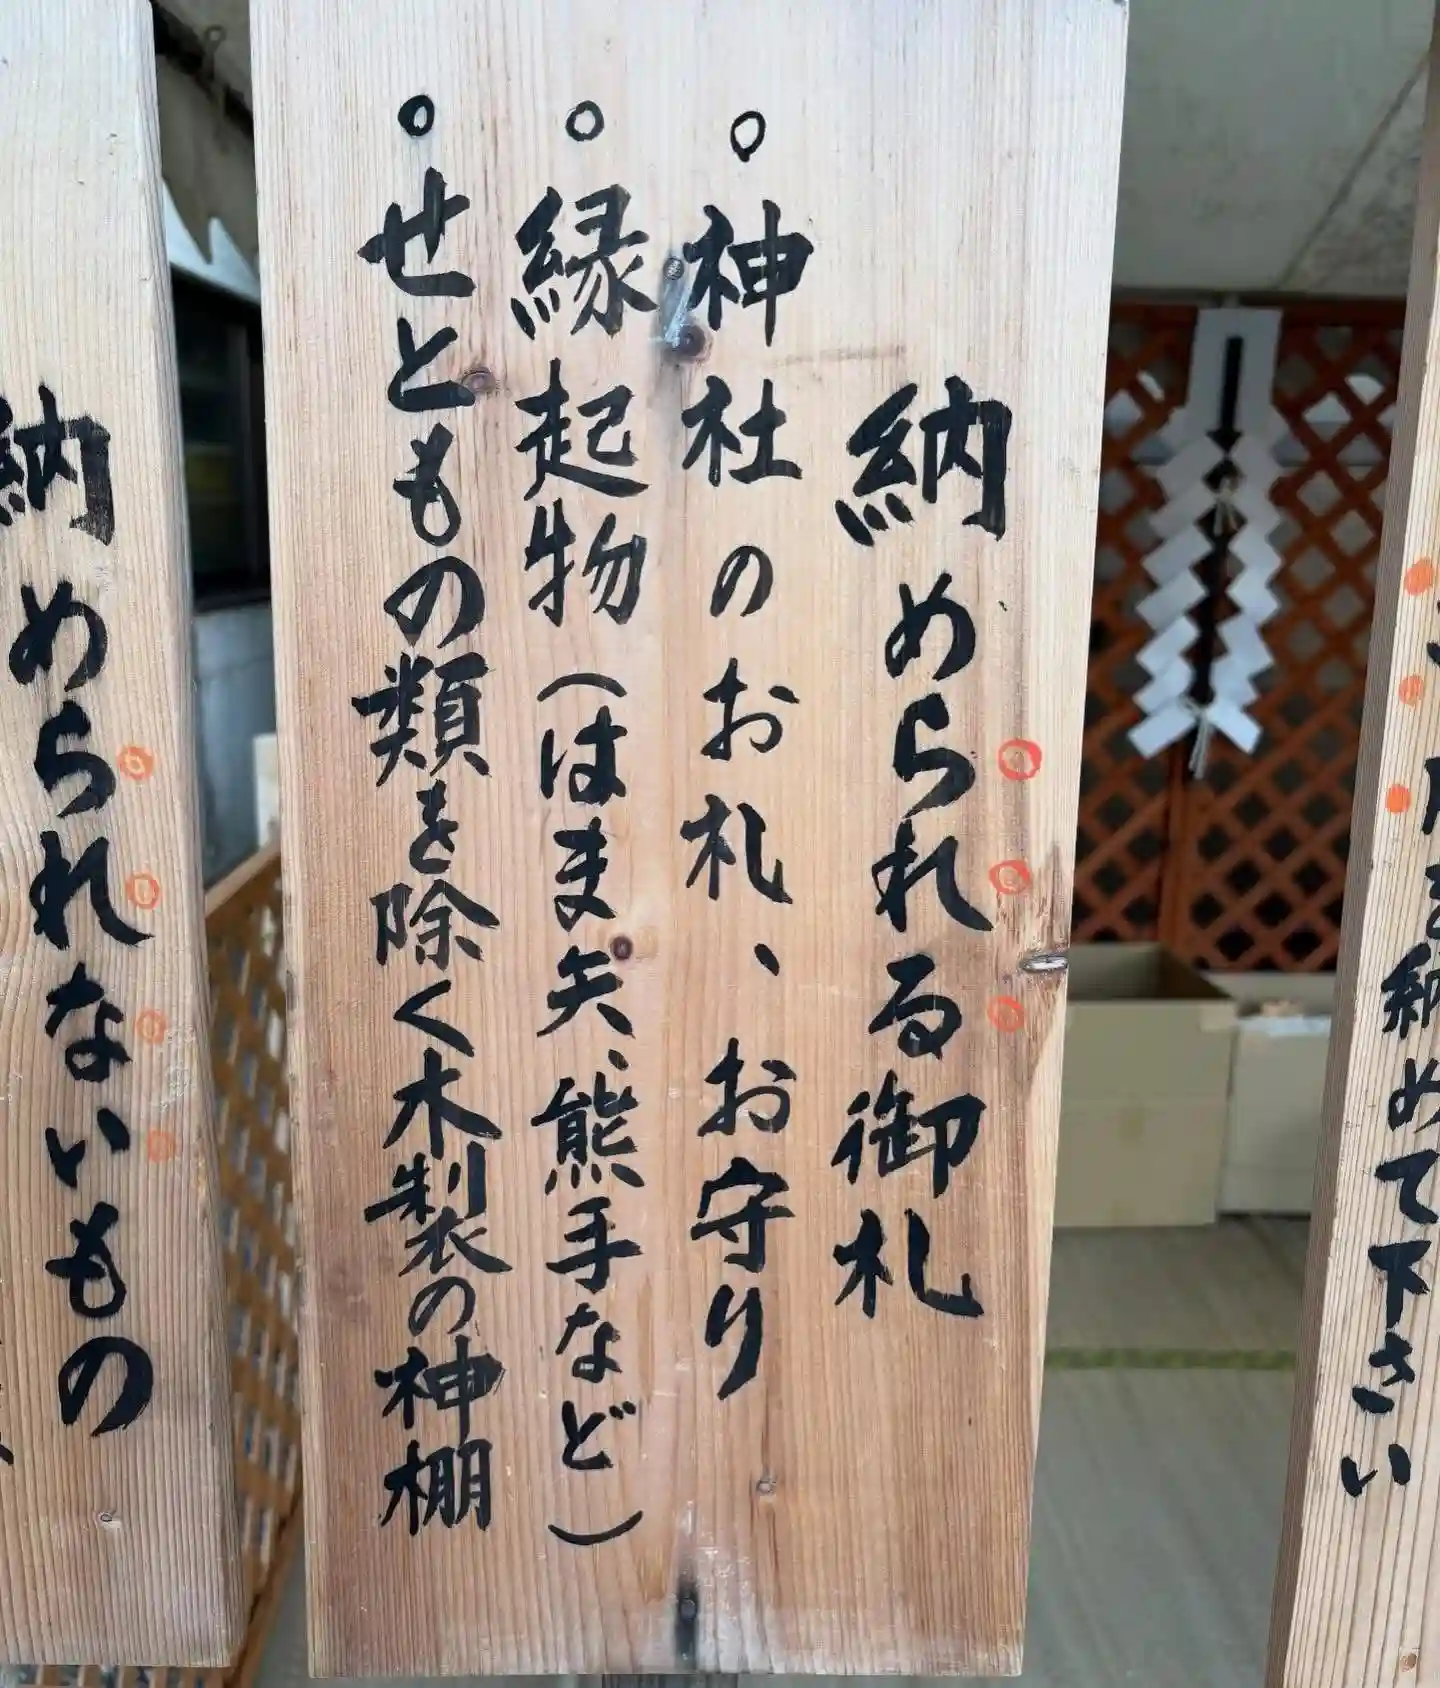 を納めて下さい
納められる御札
。神社のお札、お守り
。縁起物(はま矢、熊手など)
。せともの類を除く木製の神棚
納められないもの